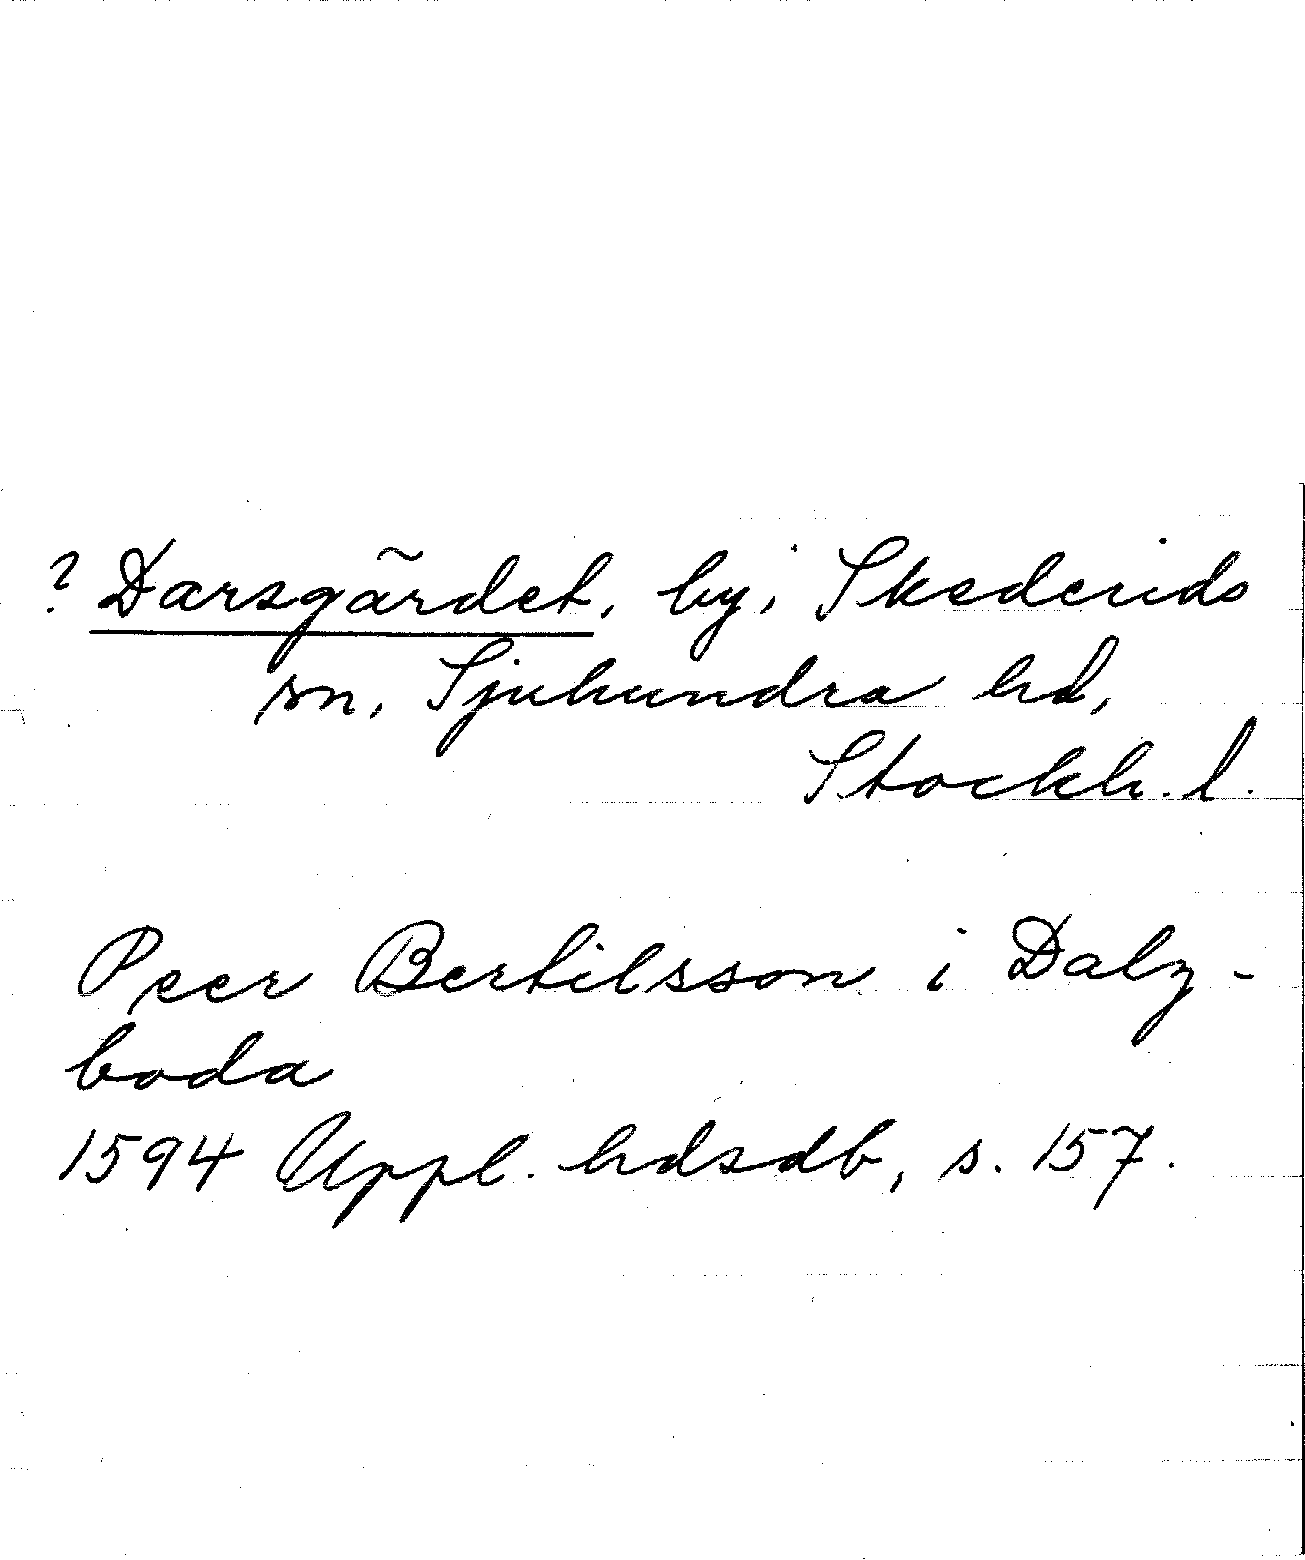 ? Darsgärdet, by, Skederids
sn, Sjuhundra hd,
Stockh. l.
Peer Bertilsson i Dalz-
boda
1594 Uppl. hdsdb, s. 157.